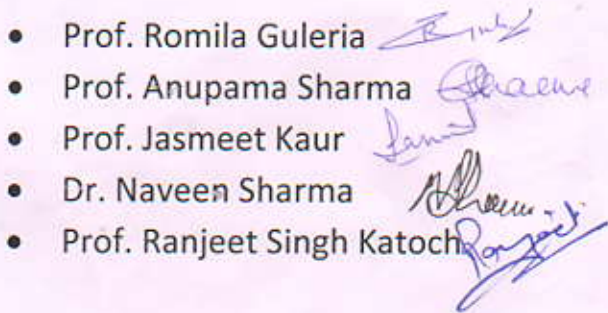 • Prof. Romila Guleria
• Prof. Anupama Sharma
• Prof. Jasmeet Kaur
• Dr. Naveen Sharma
• Prof. Ranjeet Singh Katoch Ranjeet